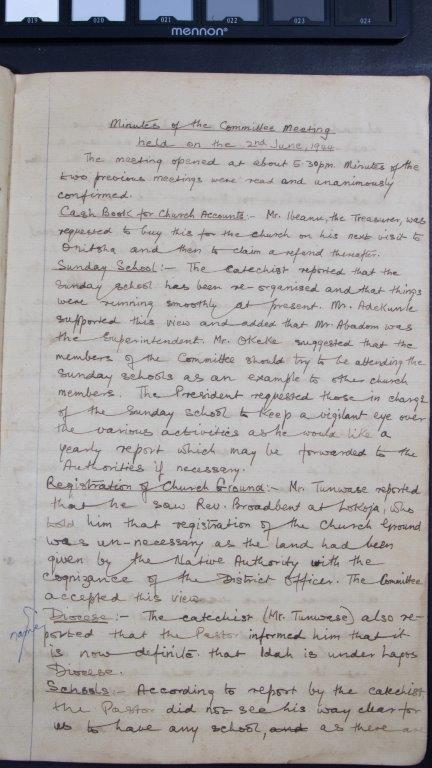 019 020 021 022 023 024
mennon®
Minutes of the Committee Meeting
held on the 2nd June, 1944
The meeting opened at about 5.30pm. Minutes of the
two previous meetings were read and unanimously
confirmed.
Cash Book for Church Accounts:- Mr. Ibeanu, the Treasurer, was
requested to buy this for the church on his next visit to
Onitsha and then to claim a refund thereafter.
Sunday School:- The Catechist reported that the
Sunday school has been re-organised and that things
were running smoothly at present. Mr. Adekunle
supported this view and added that Mr. Abadom was
the Superintendent. Mr. Okeke suggested that the
members of the Committee should try to be attending the
Sunday schools as an example to other church
members. The President requested those in charge
of the Sunday school to keep a vigilant eye over
the various activities as he would like a
yearly report which may be forwarded to the
Authorities if necessary.
Registration of Church Ground:- Mr. Tunwase reported
that he saw Rev. Broadbent at Lokoja, who
told him that registration of the Church Ground
was un-necessary as the land had been
given by the Native Authority with the
cognizance of the District Officer. The Committee
accepted this view.
Diocese:- The catechist (Mr. Tunwase) also re-
name
ported that the Pastor informed him that it
is now definite that Idah is under Lagos
Diocese.
Schools:- According to report by the catechist
the Pastor did not see his way clear for
us to have any school, and as there are